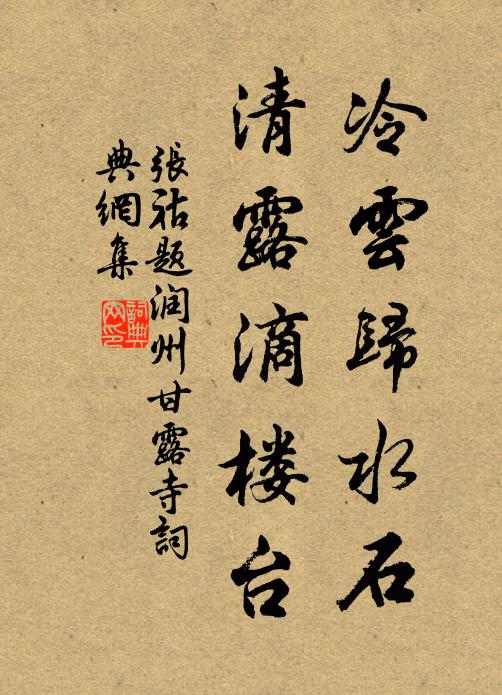 冷雲歸水石
清露滴楼台
張祜題润州甘露寺詞
典網集
詞典
网印